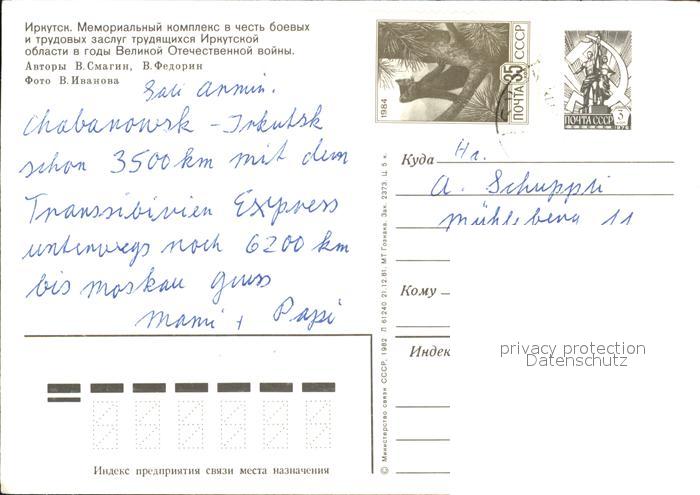 Иркутск. Мемориальный комплекс в честь боевых
и трудовых заслуг трудящихся Иркутской
области в годы Великой Отечественной войны.
Авторы В.Смагин, В.Федорин
Фото В.Иванова
Sali Armin.
Chabanowsk - Irkutsk
schon 3500 km mit dem
Transsibirien Express
unterwegs noch 6200 km
bis Moskau gruss
Mami + Papi
1984
ПОЧТА СССР
35
ПОЧТА СССР
3
1976
Куда
Hr.
A. Schuppli
Mühleberg 11
Кому
Индек
privacy protection
Datenschutz
© Министерство связи СССР, 1982 Л 61240 21.12.81. МТ Гознака. Зак. 2373. Ц. 5 к.
Индекс предприятия связи места назначения